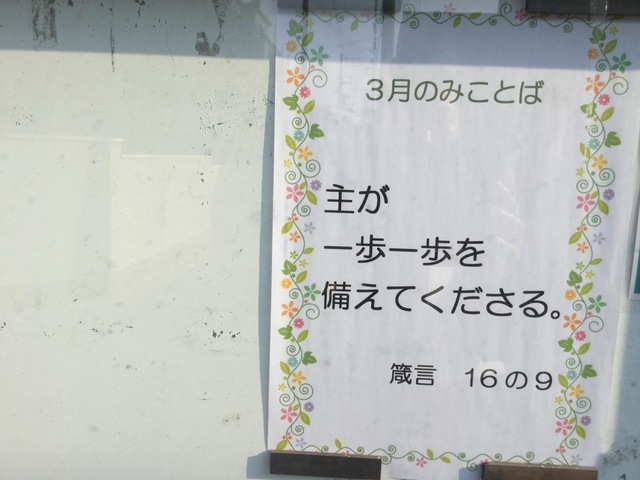 3月のみことば
主が
一歩一歩を
備えてくださる。
箴言　16の9